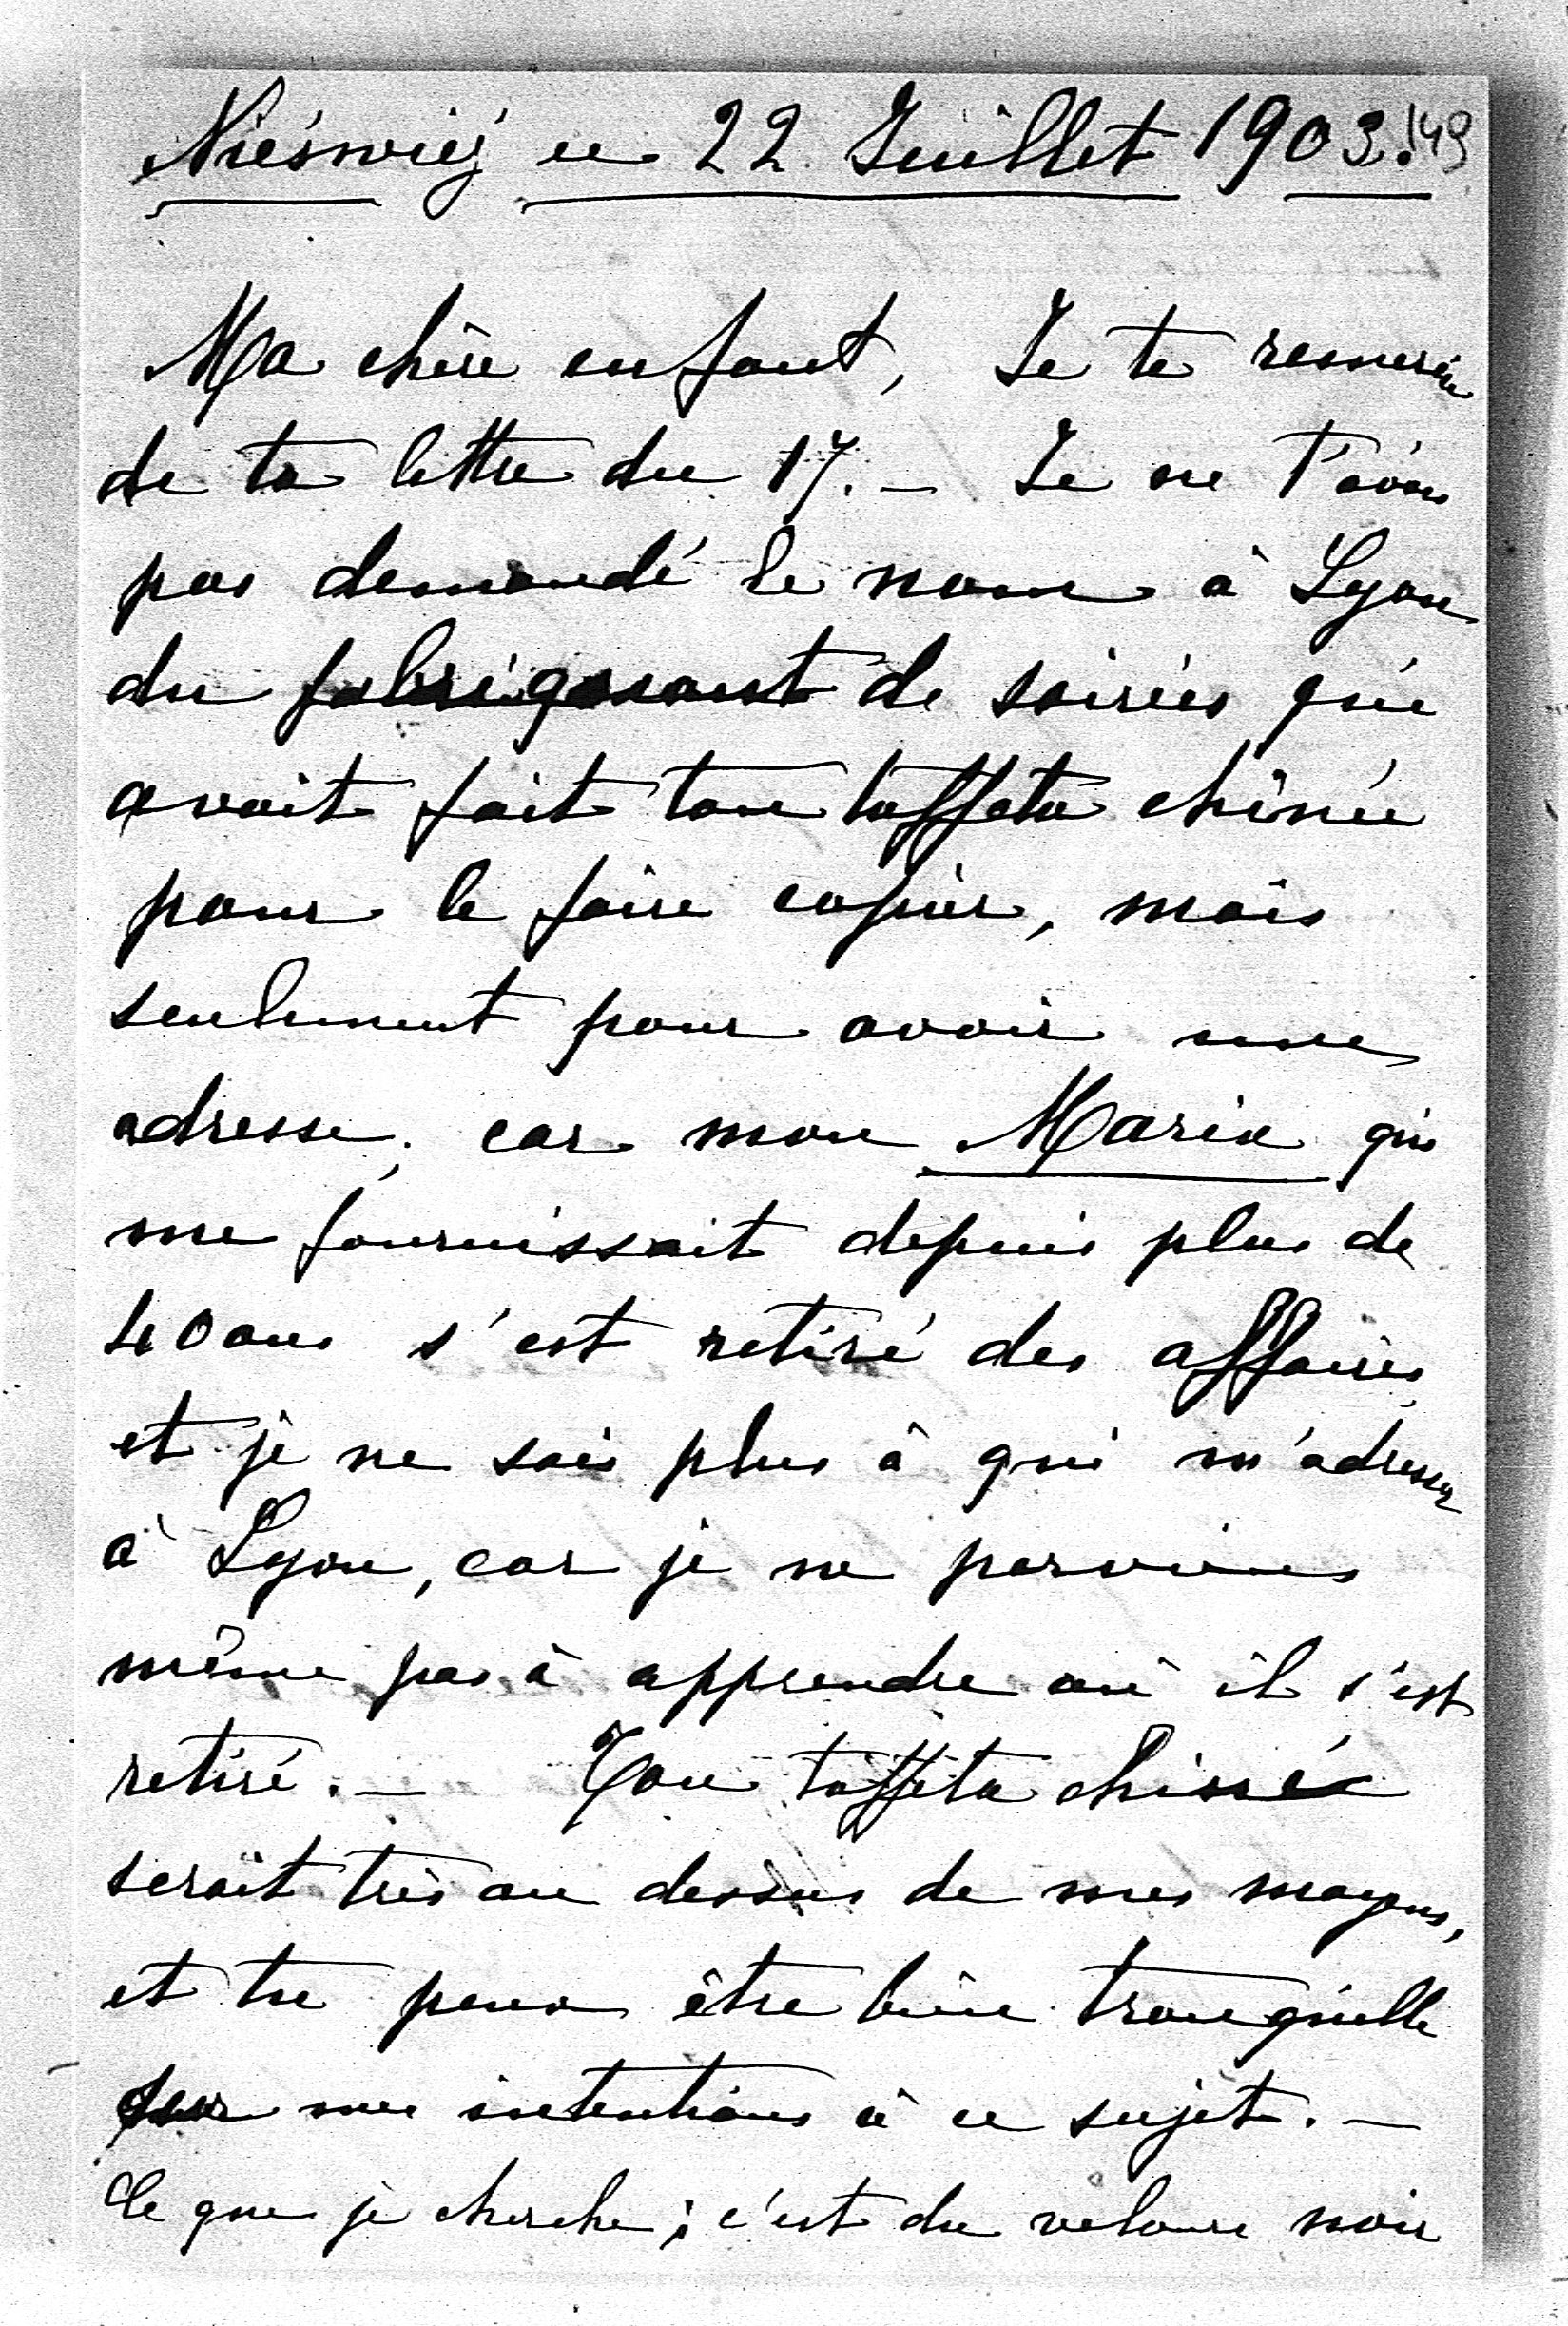 Nieśwież ce 22 Juillet 1903. 149
Ma chère enfant, Je te remercie
de ta lettre du 17. — Je ne t'avais
pas demandé le nom à Lyon
du fabriquant de soiries qui
avait fait ton taffeta chinée
pour le faire copier, mais
seulement pour avoir une
adresse, car mon Marix qui
me fournissait depuis plus de
40 ans s'est retiré des affaires
et je ne sais plus à qui m'adresser
à Lyon, car je ne parviens
même pas à apprendre où il s'est
retiré. — Ton taffeta chiné
serait très au dessus de mes moyens,
et tu peux être bien tranquille
sur mes intentions à ce sujet. —
Ce que je cherche; c'est du velours noir